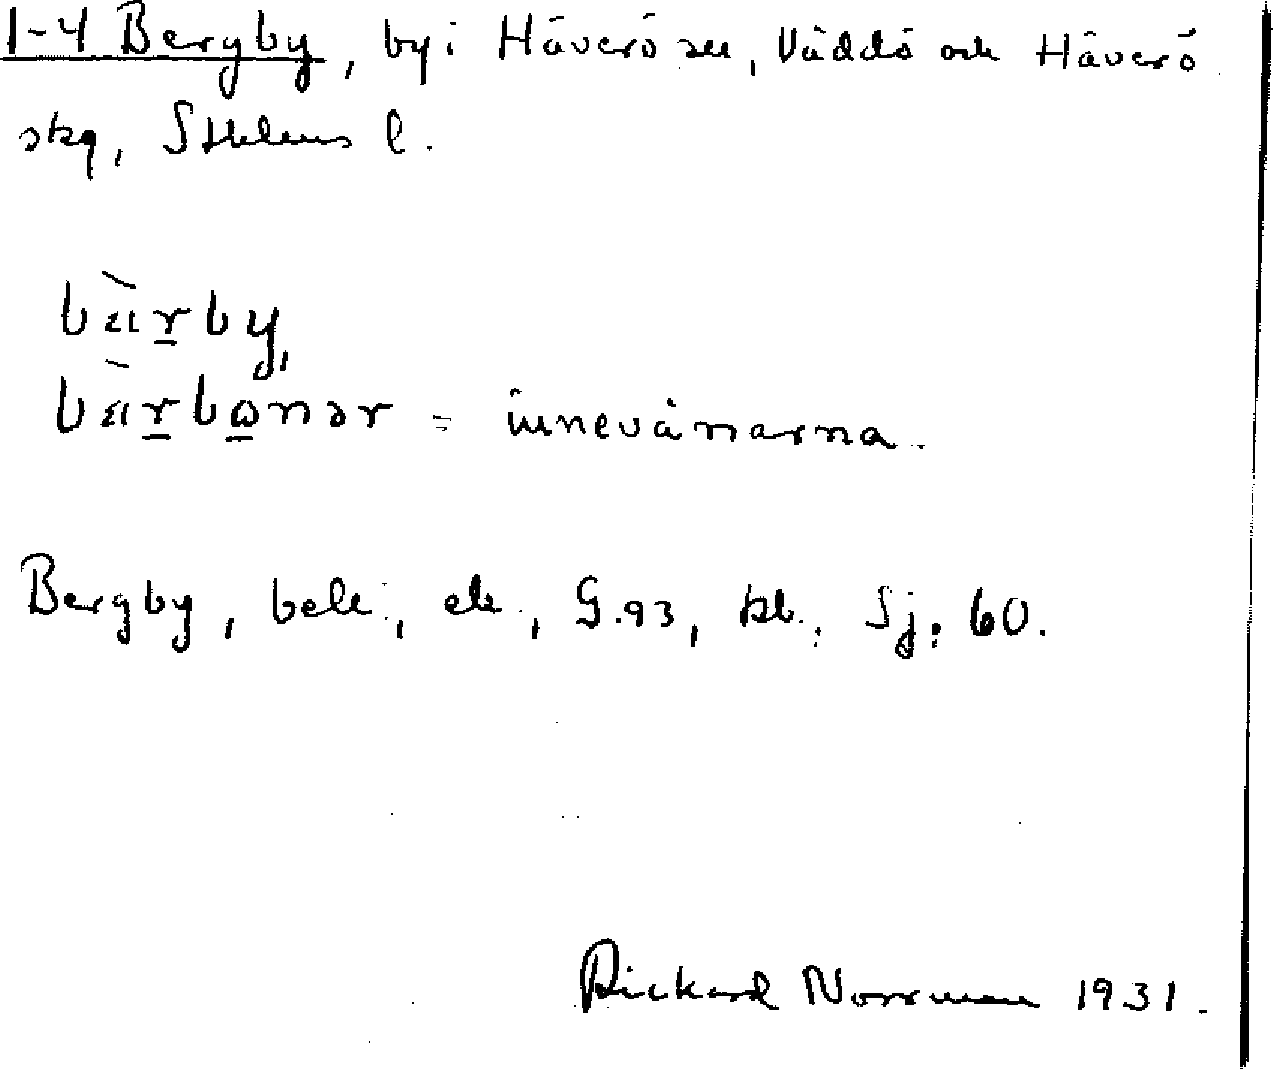 1-4 Bergby, by i Häverö sn, Väddö och Häverö
skg, Sthlms l.
bàrby,
bàrbonər = innevånarna.
Bergby, bell., ek., G.93, bl.; Sj: 60.
Rickard Norrman 1931.